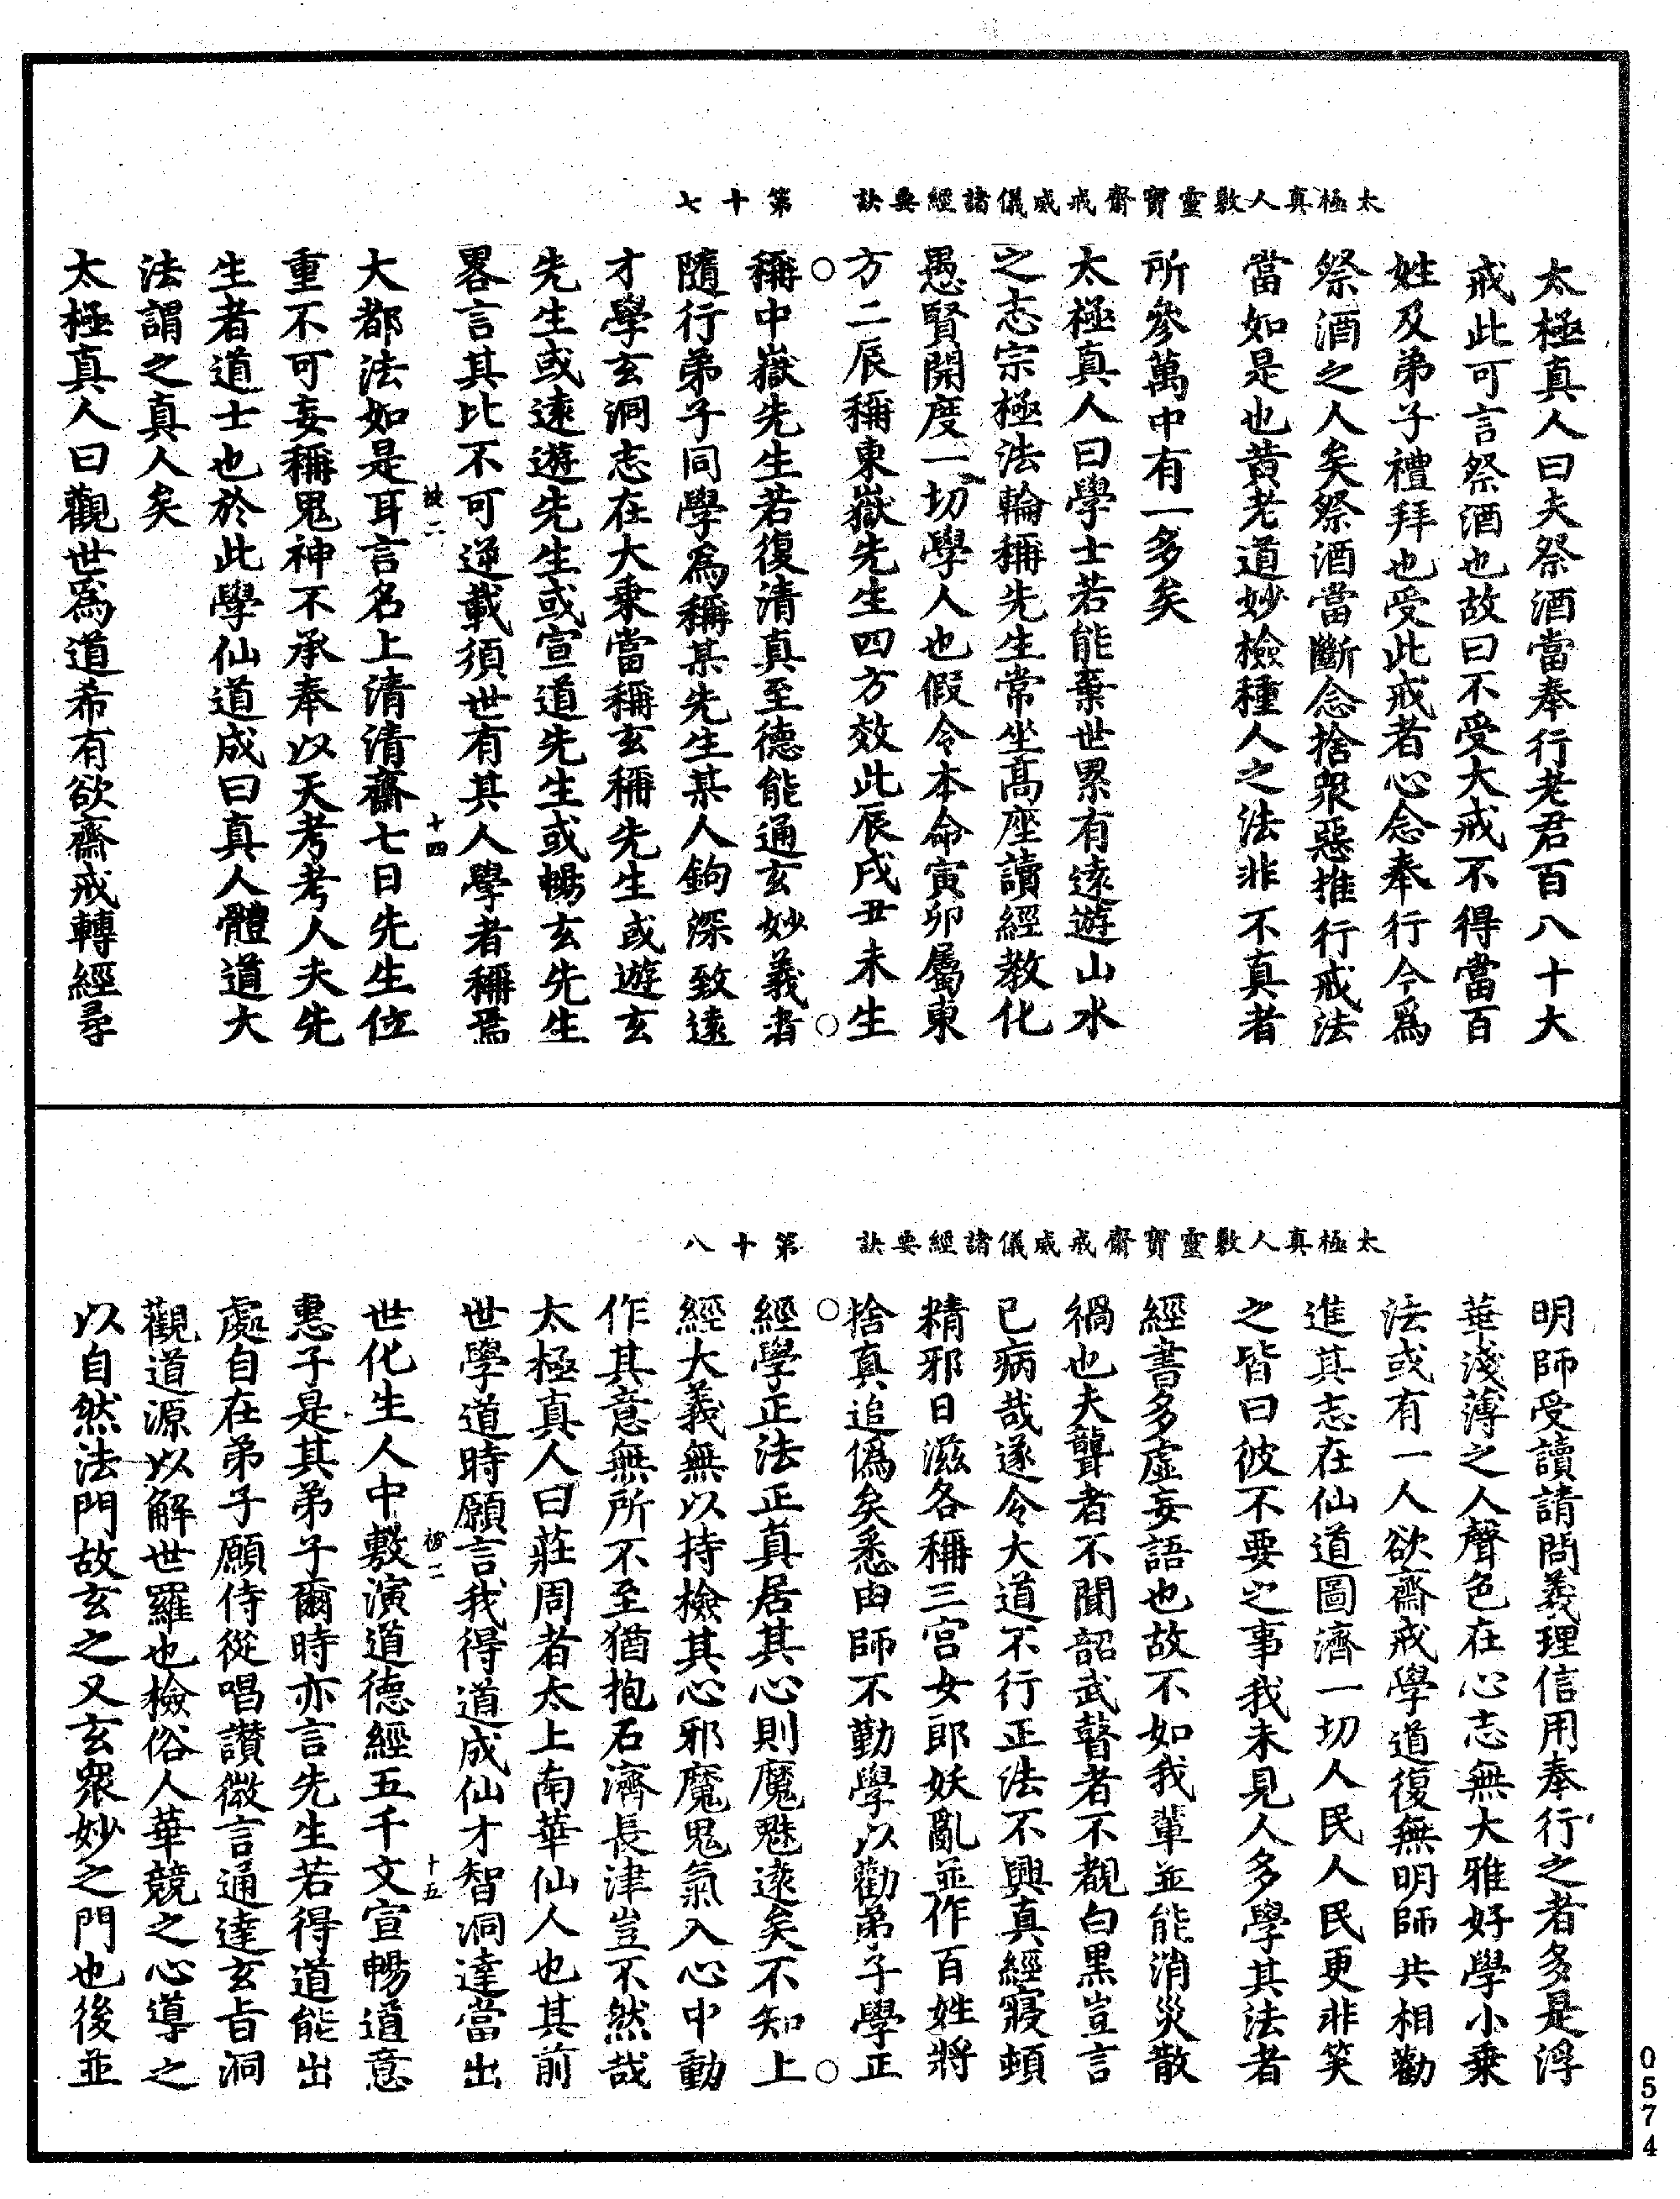 太極真人敷靈寶齋戒威儀諸經要訣　第十七
太極真人曰夫祭酒當奉行老君百八十大
戒此可言祭酒也故曰不受大戒不得當百
姓及弟子禮拜也受此戒者心念奉行今爲
祭酒之人矣祭酒當斷念捨衆惡推行戒法
當如是也黃老道妙檢種人之法非不真者
所參萬中有一多矣
太極真人曰學士若能棄世累有遠遊山水
之志宗極法輪稱先生常坐高座讀經教化
愚賢開度一切學人也假令本命寅卯屬東
方二辰稱東嶽先生四方效此辰戌丑未生
稱中嶽先生若復清真至德能通玄妙義者
隨行弟子同學爲稱某先生某人鉤深致遠
才學玄洞志在大乘當稱玄稱先生或遊玄
先生或遠遊先生或宣道先生或暢玄先生
畧言其比不可逆載須世有其人學者稱焉
十四
大都法如是耳言名上清清齋七日先生位
重不可妄稱鬼神不承奉以天考考人夫先
生者道士也於此學仙道成曰真人體道大
法謂之真人矣
太極真人曰觀世爲道希有欲齋戒轉經尋
太極真人敷靈寶齋戒威儀諸經要訣　第十八
明師受讀請問義理信用奉行之者多是浮
華淺薄之人聲色在心志無大雅好學小乘
法或有一人欲齋戒學道復無明師共相勸
進其志在仙道圖濟一切人民人民更非笑
之皆曰彼不要之事我未見人多學其法者
經書多虛妄語也故不如我輩並能消災散
禍也夫聾者不聞韶武瞽者不覩白黑豈言
已病哉遂令大道不行正法不興真經寢頓
精邪日滋各稱三宮女郎妖亂並作百姓將
捨真追僞矣悉由師不勤學以勸弟子學正
經學正法正真居其心則魔魅遠矣不知上
經大義無以持檢其心邪魔鬼氣入心中動
作其意無所不至猶抱石濟長津豈不然哉
太極真人曰莊周者太上南華仙人也其前
世學道時願言我得道成仙才智洞達當出
十五
世化生人中敷演道德經五千文宣暢道意
惠子是其弟子爾時亦言先生若得道能出
處自在弟子願侍從唱讚微言通達玄旨洞
觀道源以解世羅也檢俗人華競之心導之
以自然法門故玄之又玄衆妙之門也後並
0574